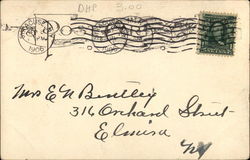 DHP 3.00
SYRACUSE
1906
Mrs E N Bentley
316 Orchard Street
Elmira
NY